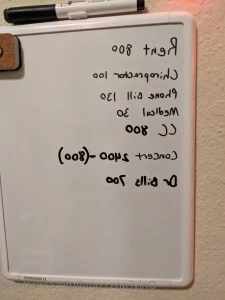 Rent 800
Chiropractor 100
Phone Bill 130
Medical 30
CC 800
Concert 2400 -(800)
Dr Bills 700